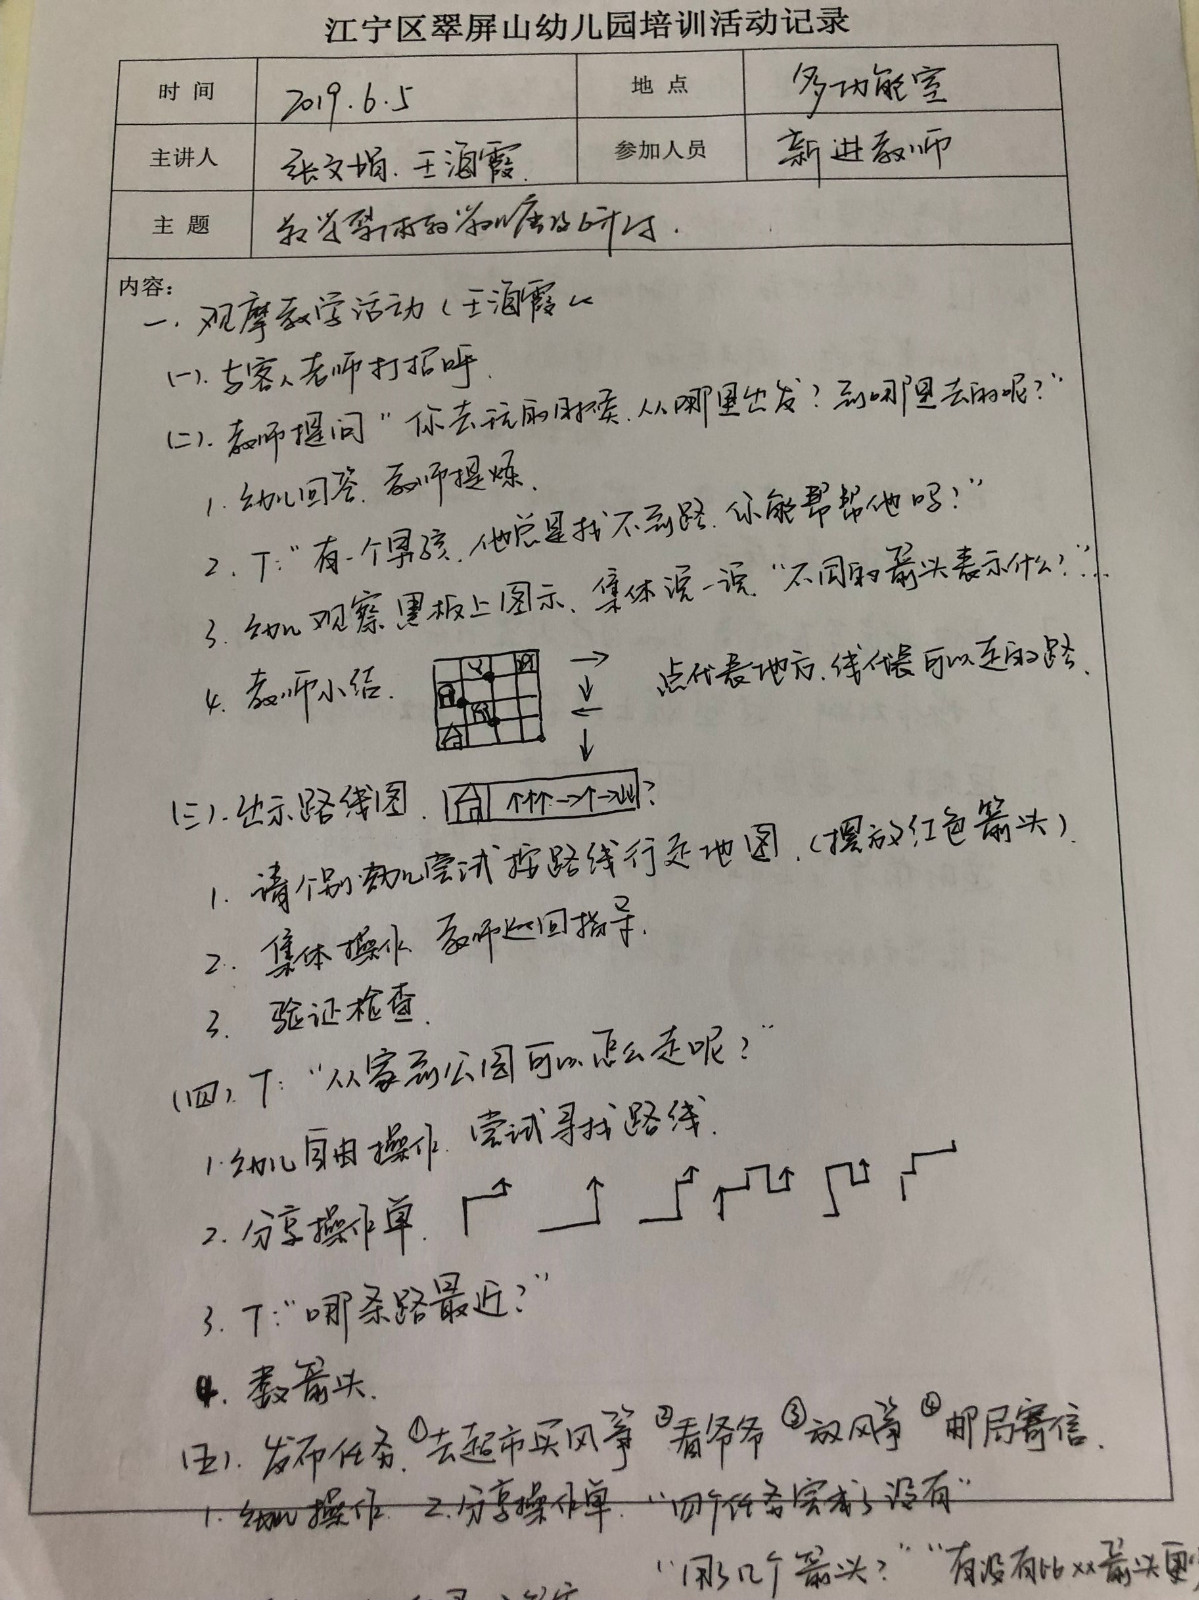 江宁区翠屏山幼儿园培训活动记录
时 间 2019.6.5 地 点 多功能室
主讲人 张文娟、王海霞 参加人员 新进教师
主 题 研讨.
内容:
一、观摩教学活动(王海霞)
(一).与客人老师打招呼.
(二).教师提问"你去玩的时候,从哪里出发?到哪里去的呢?"
1.幼儿回答,教师提炼.
2.T:"有一个男孩,他总是找不到路,你能帮帮他吗?"
3.幼儿观察黑板上图示,集体说一说"不同的箭头表示什么?"...
4.教师小结. → ↓ ← ↓ 点代表地方,线代表可以走的路.
(三).出示路线图. 台 ↑↑↑→↑→↓↓?
1.请个别幼儿尝试按路线行走地图.(摆放红色箭头).
2.集体操作 教师巡回指导.
3.验证检查.
(四).T:"从家到公园可以怎么走呢?"
1.幼儿自由操作,尝试寻找路线.
2.分享操作单.
3.T:"哪条路最近?"
4.数箭头.
(五).发布任务.①去超市买风筝 ②看爷爷 ③放风筝 ④邮局寄信.
1.幼儿操作. 2.分享操作单."四个任务完成了没有"
"用了几个箭头?" "有没有比××箭头更